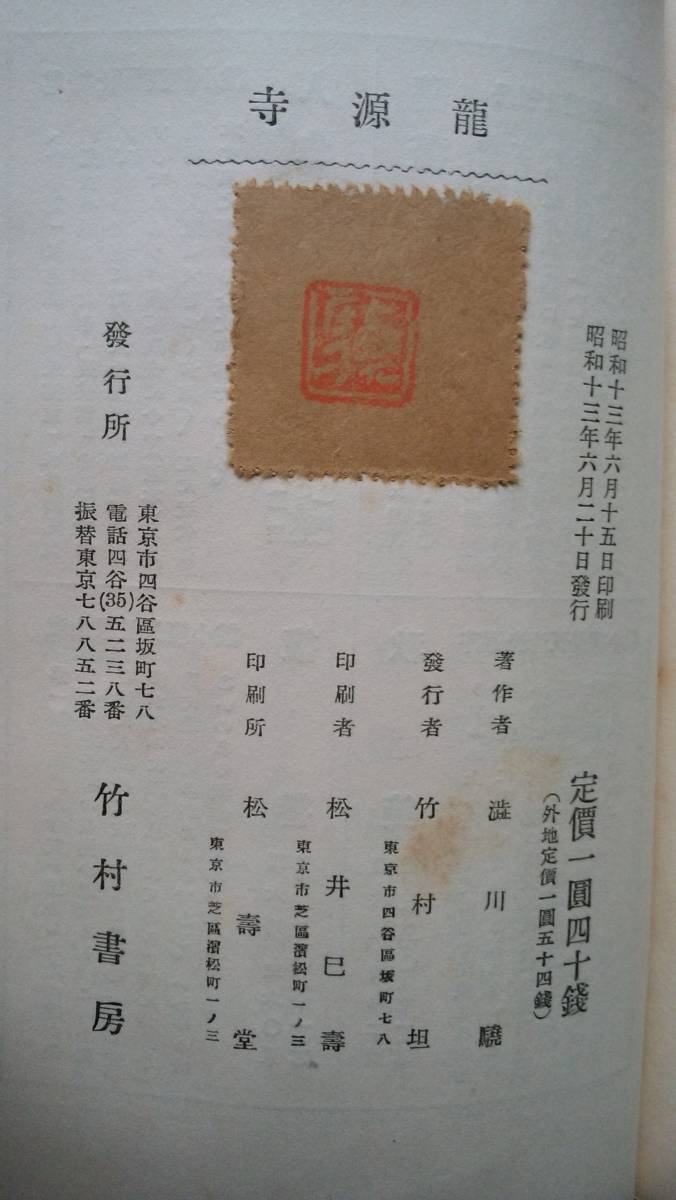 龍源寺
昭和十三年六月十五日印刷
昭和十三年六月二十日發行
定價一圓四十錢
(外地定價一圓五十四錢)
著作者 澁川驍
發行者 竹村坦
東京市四谷區坂町七八
印刷者 松井巳壽
東京市芝區濱松町一ノ三
印刷所 松壽堂
東京市芝區濱松町一ノ三
發行所
東京市四谷區坂町七八
電話四谷(35)五二三八番
振替東京七八八五二番
竹村書房
驍